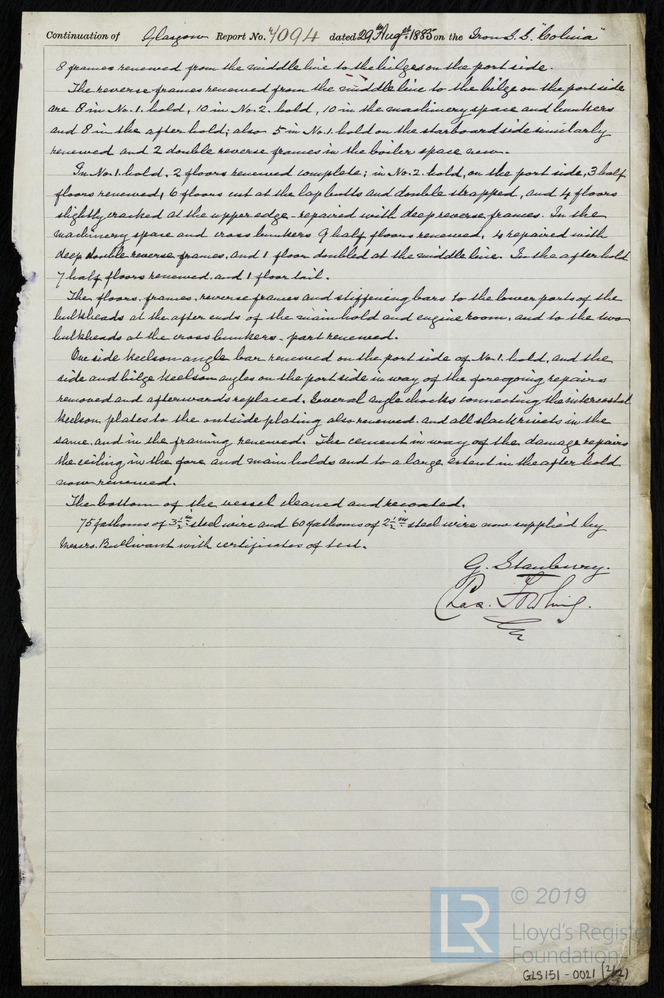 Continuation of Glasgow Report No. 7094 dated 29th Augst. 1885 on the Iron S.S. "Colina"
8 frames renewed from the middle line to the bilges on the port side.
The reverse frames renewed from the middle line to the bilge on the port side
are 8 in No. 1. hold, 10 in No. 2. hold, 10 in the machinery space and bunkers
and 8 in the after hold; also 5 in No. 1. hold on the starboard side similarly
renewed and 2 double reverse frames in the boiler space new.
In No. 1. hold, 2 floors renewed complete; in No. 2. hold, on the port side, 3 half
floors renewed, 6 floors cut at the lap butts and double strapped, and 4 floors
slightly cracked at the upper edge - repaired with deep reverse frames. In the
machinery space and cross bunkers 9 half floors renewed, 4 repaired with
deep double reverse frames, and 1 floor doubled at the middle line. In the after hold
7 half floors renewed and 1 floor tail.
The floors, frames, reverse frames and stiffening bars to the lower parts of the
bulkheads at the after ends of the main hold and engine room, and to the two
bulkheads at the cross bunkers - part renewed.
One side keelson angle bar renewed on the port side of No. 1. hold, and the
side and bilge keelson angles on the port side in way of the foregoing repairs
removed and afterwards replaced. Several angle chocks connecting the intercostal
keelson plates to the outside plating also renewed and all slack rivets in the
same, and in the framing renewed. The cement in way of the damage repairs
the ceiling in the fore and main holds and to a large extent in the after hold
now renewed.
The bottom of the vessel cleaned and recoated.
75 fathoms of 3½ in steel wire and 60 fathoms of 2½ in steel wire now supplied by
Messrs. Bullivant with certificates of test.
G. Stanbury.
Chas.
© 2019
LR
Lloyd's Register
Foundation
GLS151-0021 (2/2)